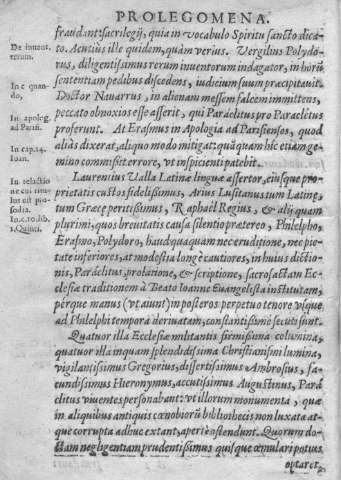 PROLEGOMENA.
fraudant sacrilegij, quia in vocabulo Spiritu sancto dica-
to. Acutius ille quidem, quàm verius. Vergilius Polydo-
rus, diligentissimus rerum inuentorum indagator, in horū
sententiam pedibus discedens, iudicium suum præcipitauit.
Doctor Nauarrus, in alienam messem falcem immittens,
peccato obnoxios esse asserit, qui Paráclitus pro Paraclêtus
proferunt. At Erasmus in Apologia ad Parisienses, quod
aliàs dixerat, aliquo modo mitigat: quāquam hîc etiam ge-
mino commisit errore, vt inspicienti patebit.
Laurentius Valla Latinæ linguæ assertor, eiusque pro-
prietatis custos fidelissimus, Arius Lusitanus tum Latinæ,
tum Græcæ peritissimus, Raphaël Regius, & alij quam
plurimi, quos breuitatis causa silentio prætereo, Philelpho,
Erasmo, Polydoro, haudquaquam nec eruditione, nec pie-
tate inferiores, at modestia longè cautiores, in huius dictio-
nis, Paráclitus, prolatione, & scriptione, sacrosactam Ec-
clesiæ traditionem à Beato Ioanne Euangelista institutam,
pérque manus (vt aiunt) in posteros perpetuo tenore vsque
ad Philelphi tempora deriuatam, constantissimè secuti sunt.
Quatuor illa Ecclesiæ militantis firmissima columina,
quatuor illa inquam splendidissima Christianismi lumina,
vigilantissimus Gregorius, disertissimus Ambrosius, fa-
cundissimus Hieronymus, accutissimus Augustinus, Pará
clitus viuentes personabant: vt illorum monumenta, quæ
in aliquibus antiquis cœnobiorū bibliothecis non luxata at-
que corrupta adhuc extant, apertè ostendunt. Quorum do-
ctam negligentiam prudentissimus quisque æmulari potius
optaret,
De inuent.
rerum.
In c. quan-
do,
In apolog.
ad Parisi.
In cap. 14.
Ioan.